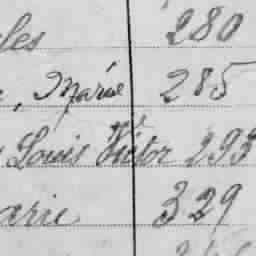 les 280
, Marie 285
Louis Victor 293
arie 329